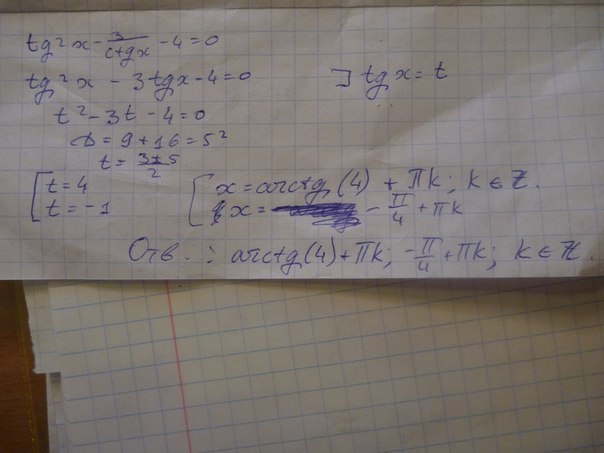 tg²x - 3/ctgx - 4 = 0
tg²x - 3tgx - 4 = 0 ∃ tgx = t
t² - 3t - 4 = 0
D = 9 + 16 = 5²
t = (3±5)/2
[ t = 4 [ x = arctg(4) + πk; k ∈ Z.
t = -1 x = -π/4 + πk
Отв.: arctg(4) + πk; -π/4 + πk; k ∈ Z.